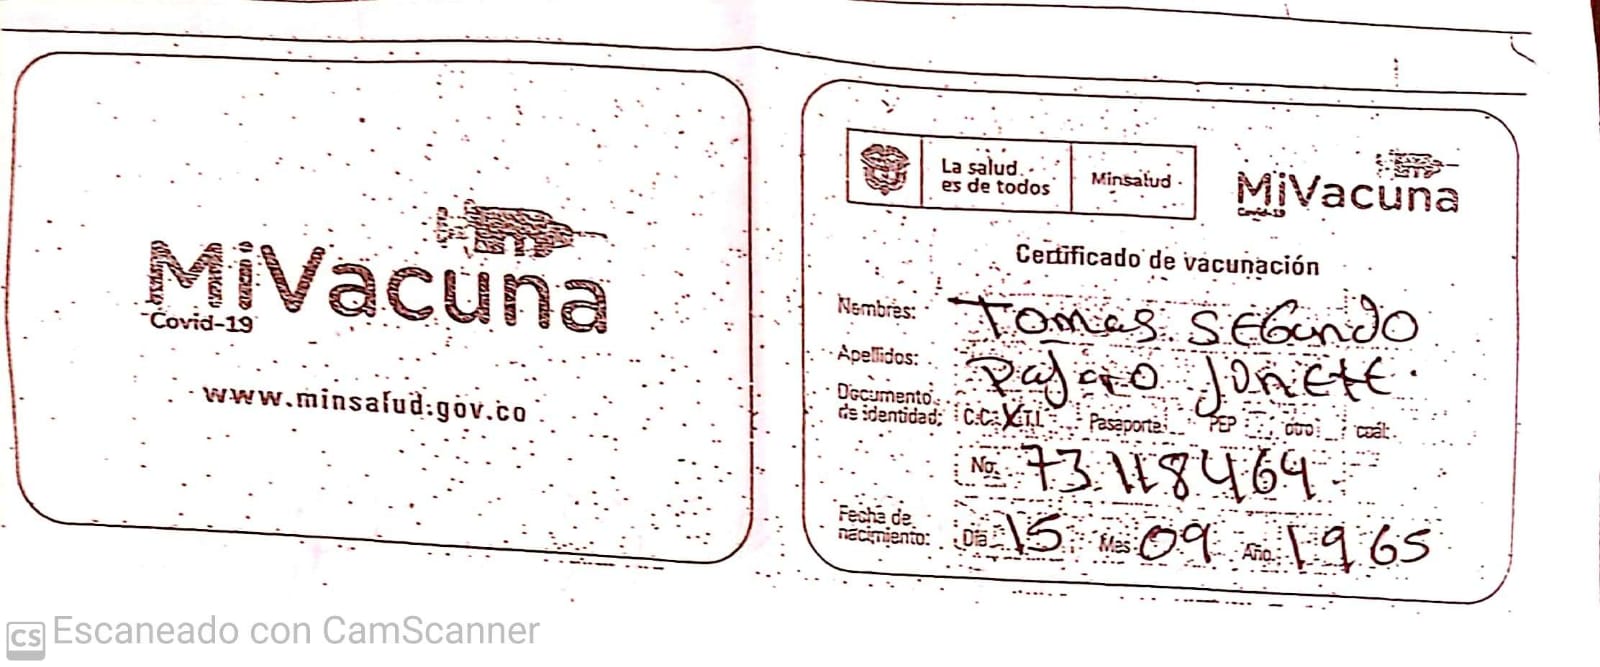 MiVacuna
Covid-19
www.minsalud.gov.co
La salud
es de todos
Minsalud
MiVacuna
Covid-19
Certificado de vacunación
Nombres: Tomas SEGundO
Apellidos: Pajaro
Documento
de identidad: C.C. X T.I. Pasaporte PEP otro cuál
No. 73118464
Fecha de
nacimiento: Día 15 Mes 09 Año 1965
CS Escaneado con CamScanner